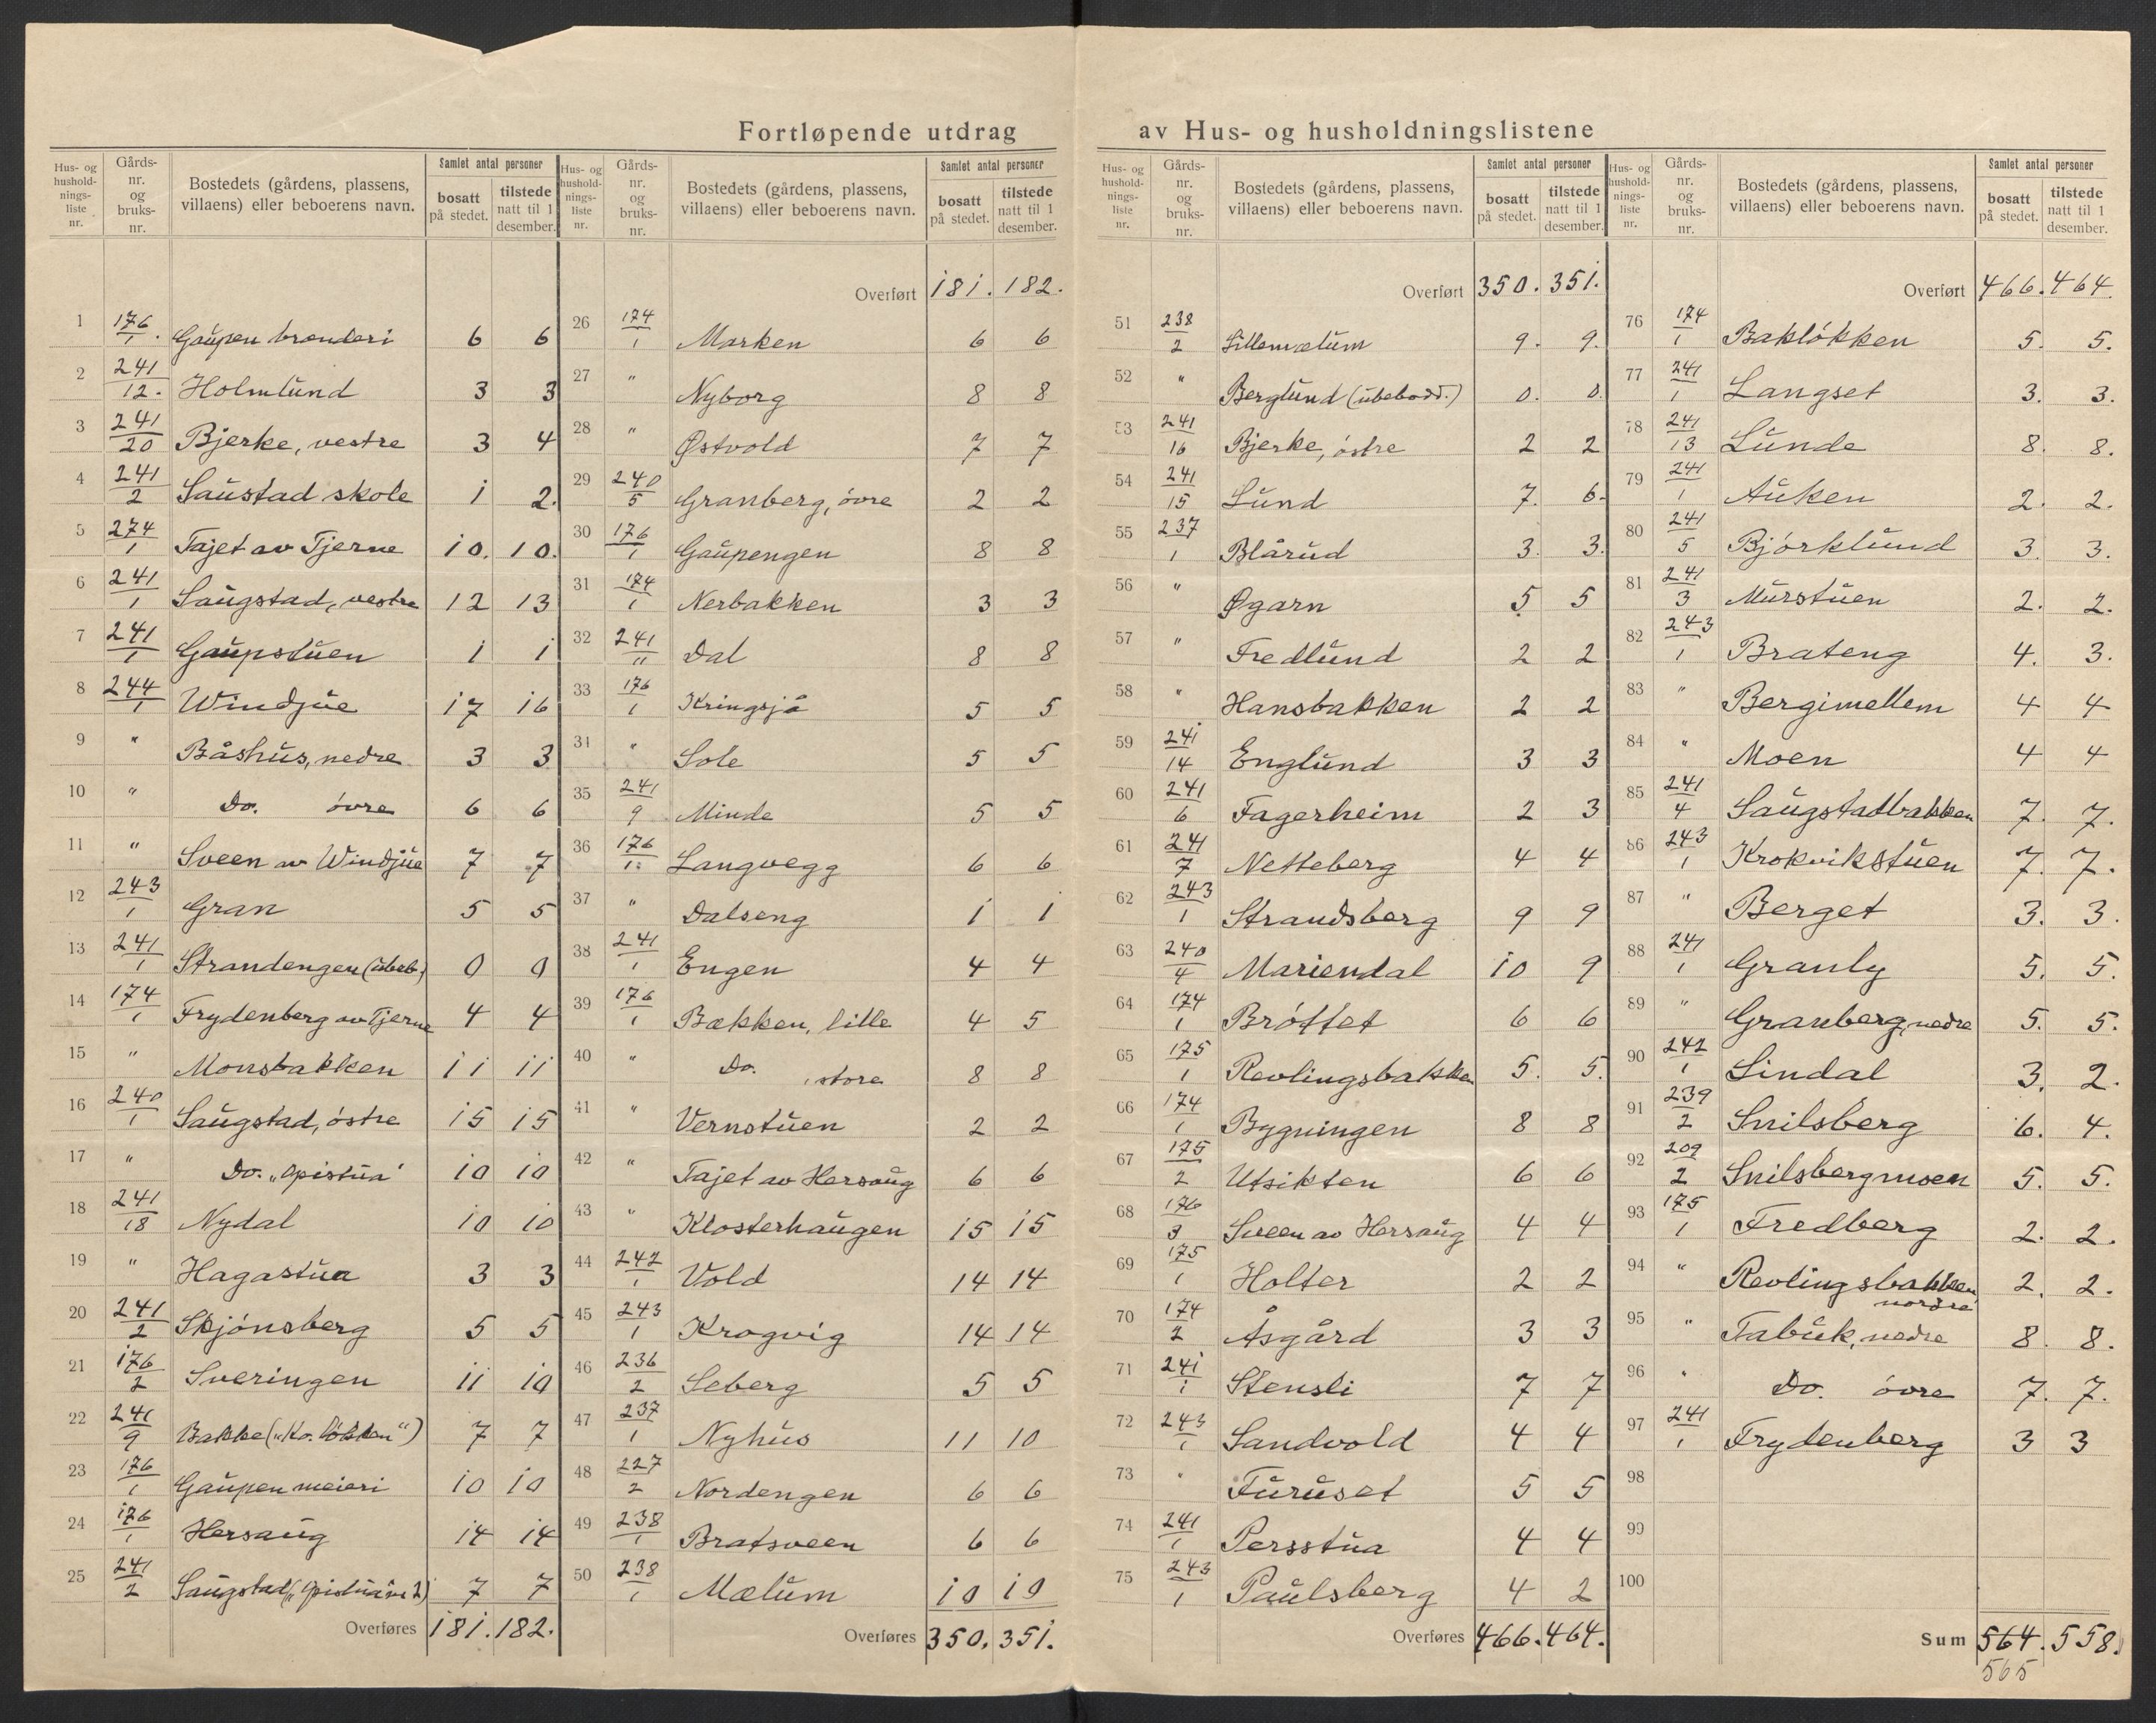 Fortløpende utdrag av Hus- og husholdningslistene
Hus- og husholdnings-liste nr. | Gårds-nr. og bruks-nr. | Bostedets (gårdens, plassens, villaens) eller beboerens navn. | Samlet antal personer: bosatt på stedet. | tilstede natt til 1 desember.
1 176/1. Gaupen brænderi 6 6
2 241/12. Holmlund 3 3
3 241/20 Bjerke, vestre 3 4
4 241/2 Saustad skole 1 2.
5 274/1 Tajet av Tjerne 10. 10.
6 241/1 Saugstad, vestre 12 13
7 241/1 Gaupstuen 1 1
8 244/1 Windjue 17 16
9 " Båshus, nedre 3 3
10 " Do. øvre 6 6
11 " Sveen av Windjue 7 7
12 243/1 Gran 5 5
13 241/1 Strandengen (ubeb.) 0 0
14 174/1 Frydenberg av Tjerne 4 4
15 " Monsbakken 11 11
16 240/1 Saugstad, østre 15 15
17 " Do. "Opistua" 10 10
18 241/18 Nydal 10 10
19 " Hagastua 3 3
20 241/2 Skjønsberg 5 5
21 176/2 Sveringen 11 10
22 241/9 Bakke ("Ko. løkken") 7 7
23 176/1 Gaupen meieri 10 10
24 176/1 Hersaug 14 14
25 241/2 Saugstad ("Opistua" 2) 7 7
Overføres 181. 182.
Hus- og husholdnings-liste nr. | Gårds-nr. og bruks-nr. | Bostedets (gårdens, plassens, villaens) eller beboerens navn. | Samlet antal personer: bosatt på stedet. | tilstede natt til 1 desember.
Overført 181. 182.
26 174/1 Marken 6 6
27 " Nyborg 8 8
28 " Østvold 7 7
29 240/5 Granberg, øvre 2 2
30 176/1 Gaupengen 8 8
31 174/1 Nerbakken 3 3
32 241/11 Dal 8 8
33 176/1 Kringsjå 5 5
34 " Sole 5 5
35 241/9 Minde 5 5
36 176/1. Langvegg 6 6
37 " Dalseng 1 1
38 241/1 Engen 4 4
39 176/1 Bækken, lille 4 5
40 " Do. , store 8 8
41 " Vernstuen 2 2
42 " Tajet av Hersaug 6 6
43 " Klosterhaugen 15 15
44 242/1 Vold 14 14
45 243/1 Krogvig 14 14
46 236/2 Seberg 5 5
47 237/1 Nyhus 11 10
48 227/2 Nordengen 6 6
49 238/1 Bratsveen 6 6
50 238/1 Mælum 10 10
Overføres 350. 351.
Hus- og husholdnings-liste nr. | Gårds-nr. og bruks-nr. | Bostedets (gårdens, plassens, villaens) eller beboerens navn. | Samlet antal personer: bosatt på stedet. | tilstede natt til 1 desember.
Overført 350. 351.
51 238/2 Lillemælum 9. 9.
52 " Berglund (ubebodd.) 0. 0.
53 241/16 Bjerke, østre 2 2
54 241/15 Lund 7. 6.
55 237/1 Blårud 3. 3.
56 " Øgarn 5 5
57 " Fredlund 2 2
58 " Hansbakken 2 2
59 241/14 Englund 3 3
60 241/6 Fagerheim 2 3
61 241/7 Netteberg 4 4
62 243/1 Strandsberg 9 9
63 240/4 Mariendal 10 9
64 174/1 Brøttet 6 6
65 175/1 Revlingsbakken 5. 5.
66 174/1 Bygningen 8 8
67 175/2 Utsikten 6 6
68 176/3 Sveen av Hersaug 4 4
69 175/1 Holter 2 2
70 174/2 Åsgård 3 3
71 241/1 Stensli 7 7
72 243/1 Sandvold 4 4
73 " Furuset 5 5
74 241/1 Persstua 4 4
75 243/1 Paulsberg 4 2
Overføres 466. 464.
Hus- og husholdnings-liste nr. | Gårds-nr. og bruks-nr. | Bostedets (gårdens, plassens, villaens) eller beboerens navn. | Samlet antal personer: bosatt på stedet. | tilstede natt til 1 desember.
Overført 466. 464.
76 174/1 Bakløkken 5. 5.
77 241/1 Langset 3. 3.
78 241/13 Lunde 8. 8.
79 241/1 Auken 2. 2.
80 241/5 Bjørklund 3. 3.
81 241/3 Murstuen 2. 2.
82 243/1 Brateng 4. 3.
83 " Bergimellem 4 4
84 " Moen 4 4
85 241/4 Saugstadbakken 7. 7.
86 243/1 Krokvikstuen 7. 7.
87 " Berget 3. 3.
88 241/1 Granly 5. 5.
89 " Granberg, nedre 5. 5.
90 242/1 Lindal 3. 2.
91 239/2 Snilsberg 6. 4.
92 209/2 Snilsbergmoen 5. 5.
93 175/1 Fredberg 2. 2.
94 " Revlingsbakken nordre 2. 2.
95 " Tabuk, nedre 8. 8.
96 " Do. øvre 7. 7.
97 241/1 Frydenberg 3 3
98
99
100
Sum 564. 558.
565